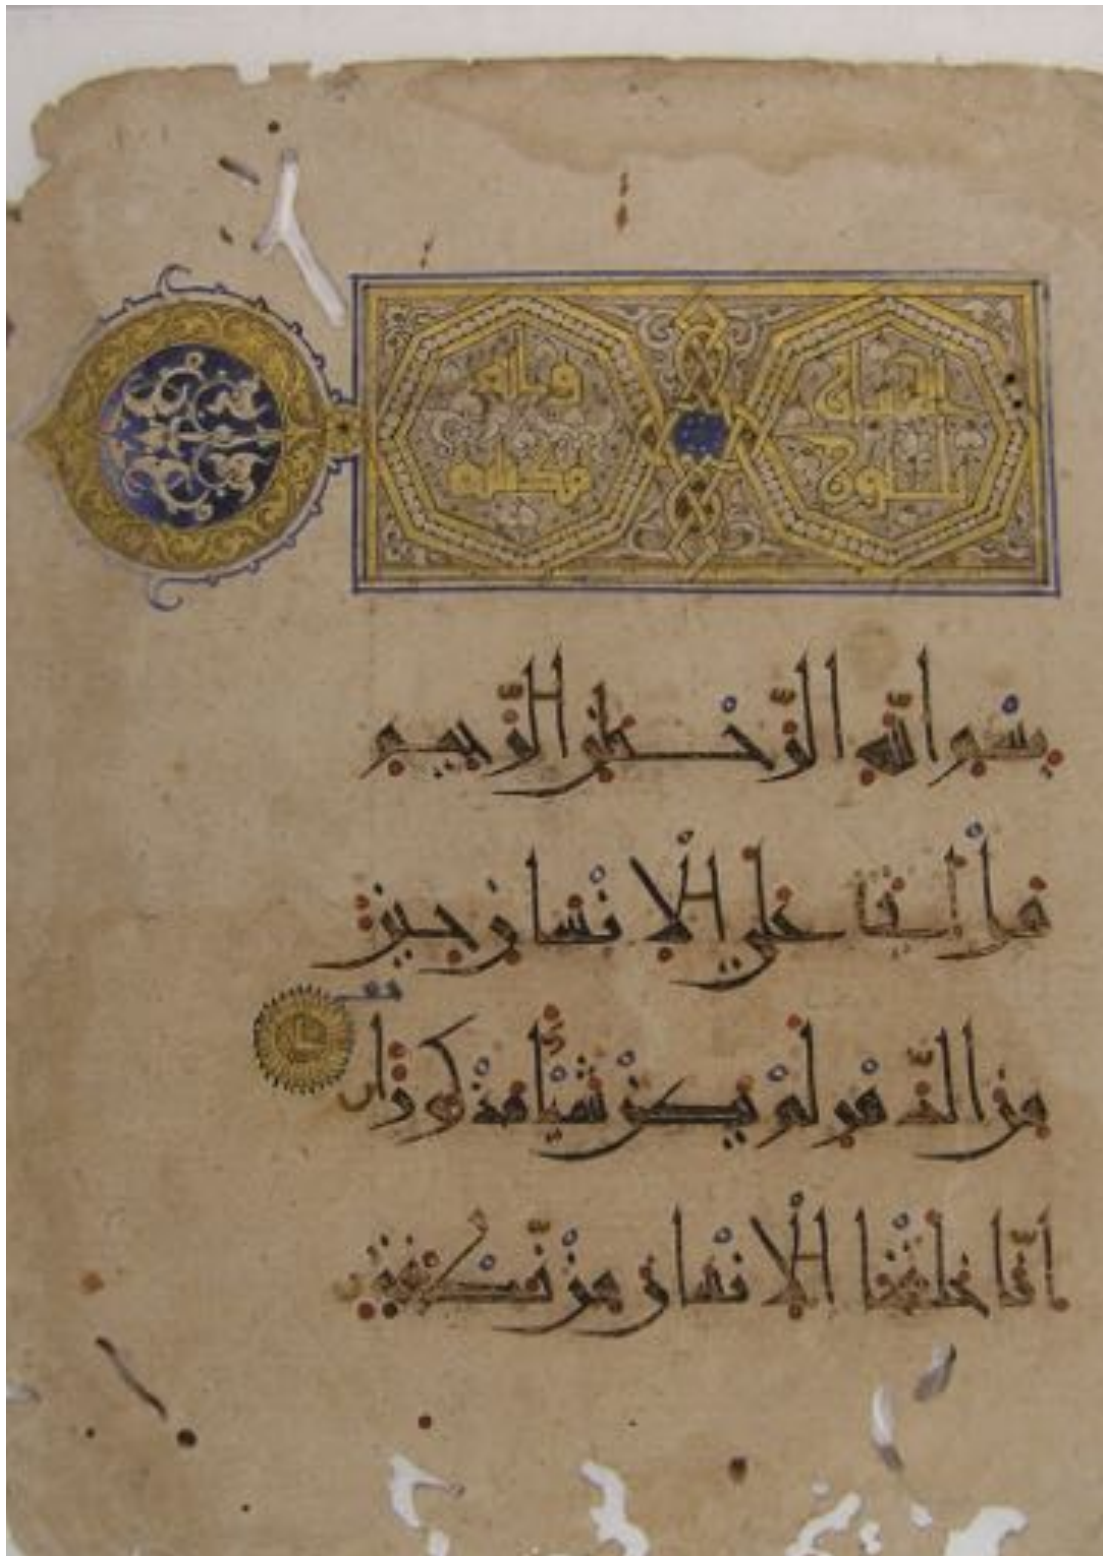 الانسان
ثلثون
وايه
مكيه
بسم الله الرحمن الرحيم
هل اتى على الانسان حين
من الدهر لم يكن شيئا مذكورا
انا خلقنا الانسان من نطفة